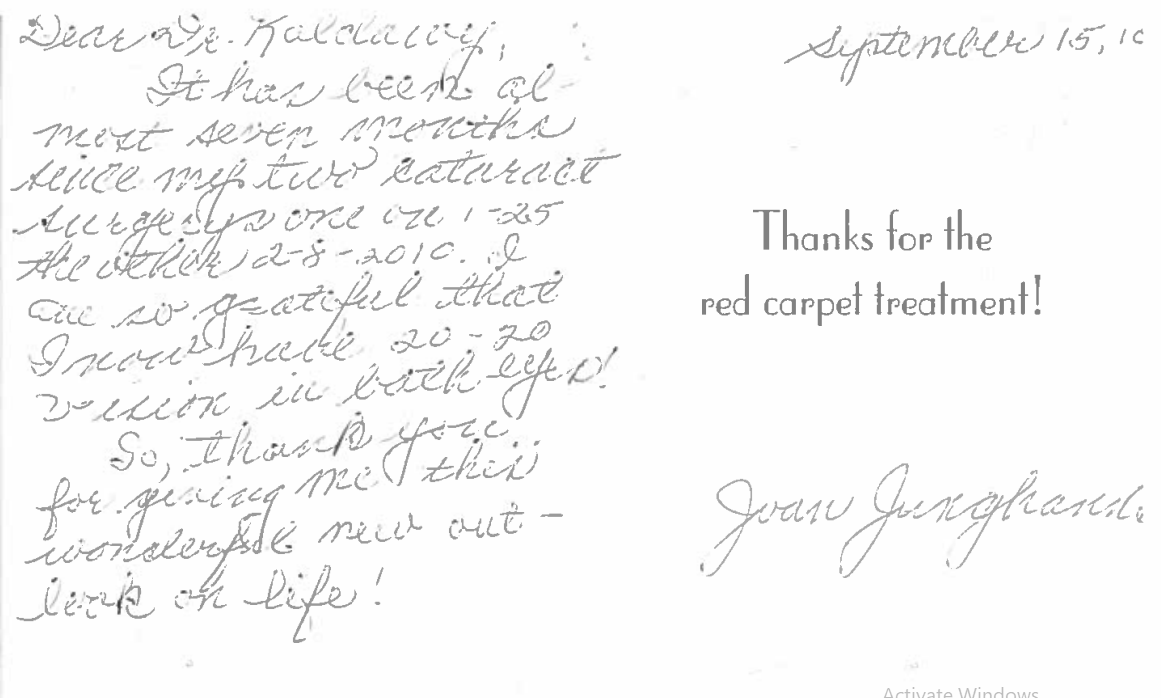 Dear Dr. Kaldawy,
It has been al
most seven months
since my two cataract
surgerys one on 1-25
the other 2-8-2010. I
am so grateful that
I now have 20-20
vision in both eyes!
So, thank you
for giving me this
wonderful new out-
look on life!
September 15, 10
Thanks for the
red carpet treatment!
Joan
Activate Windows